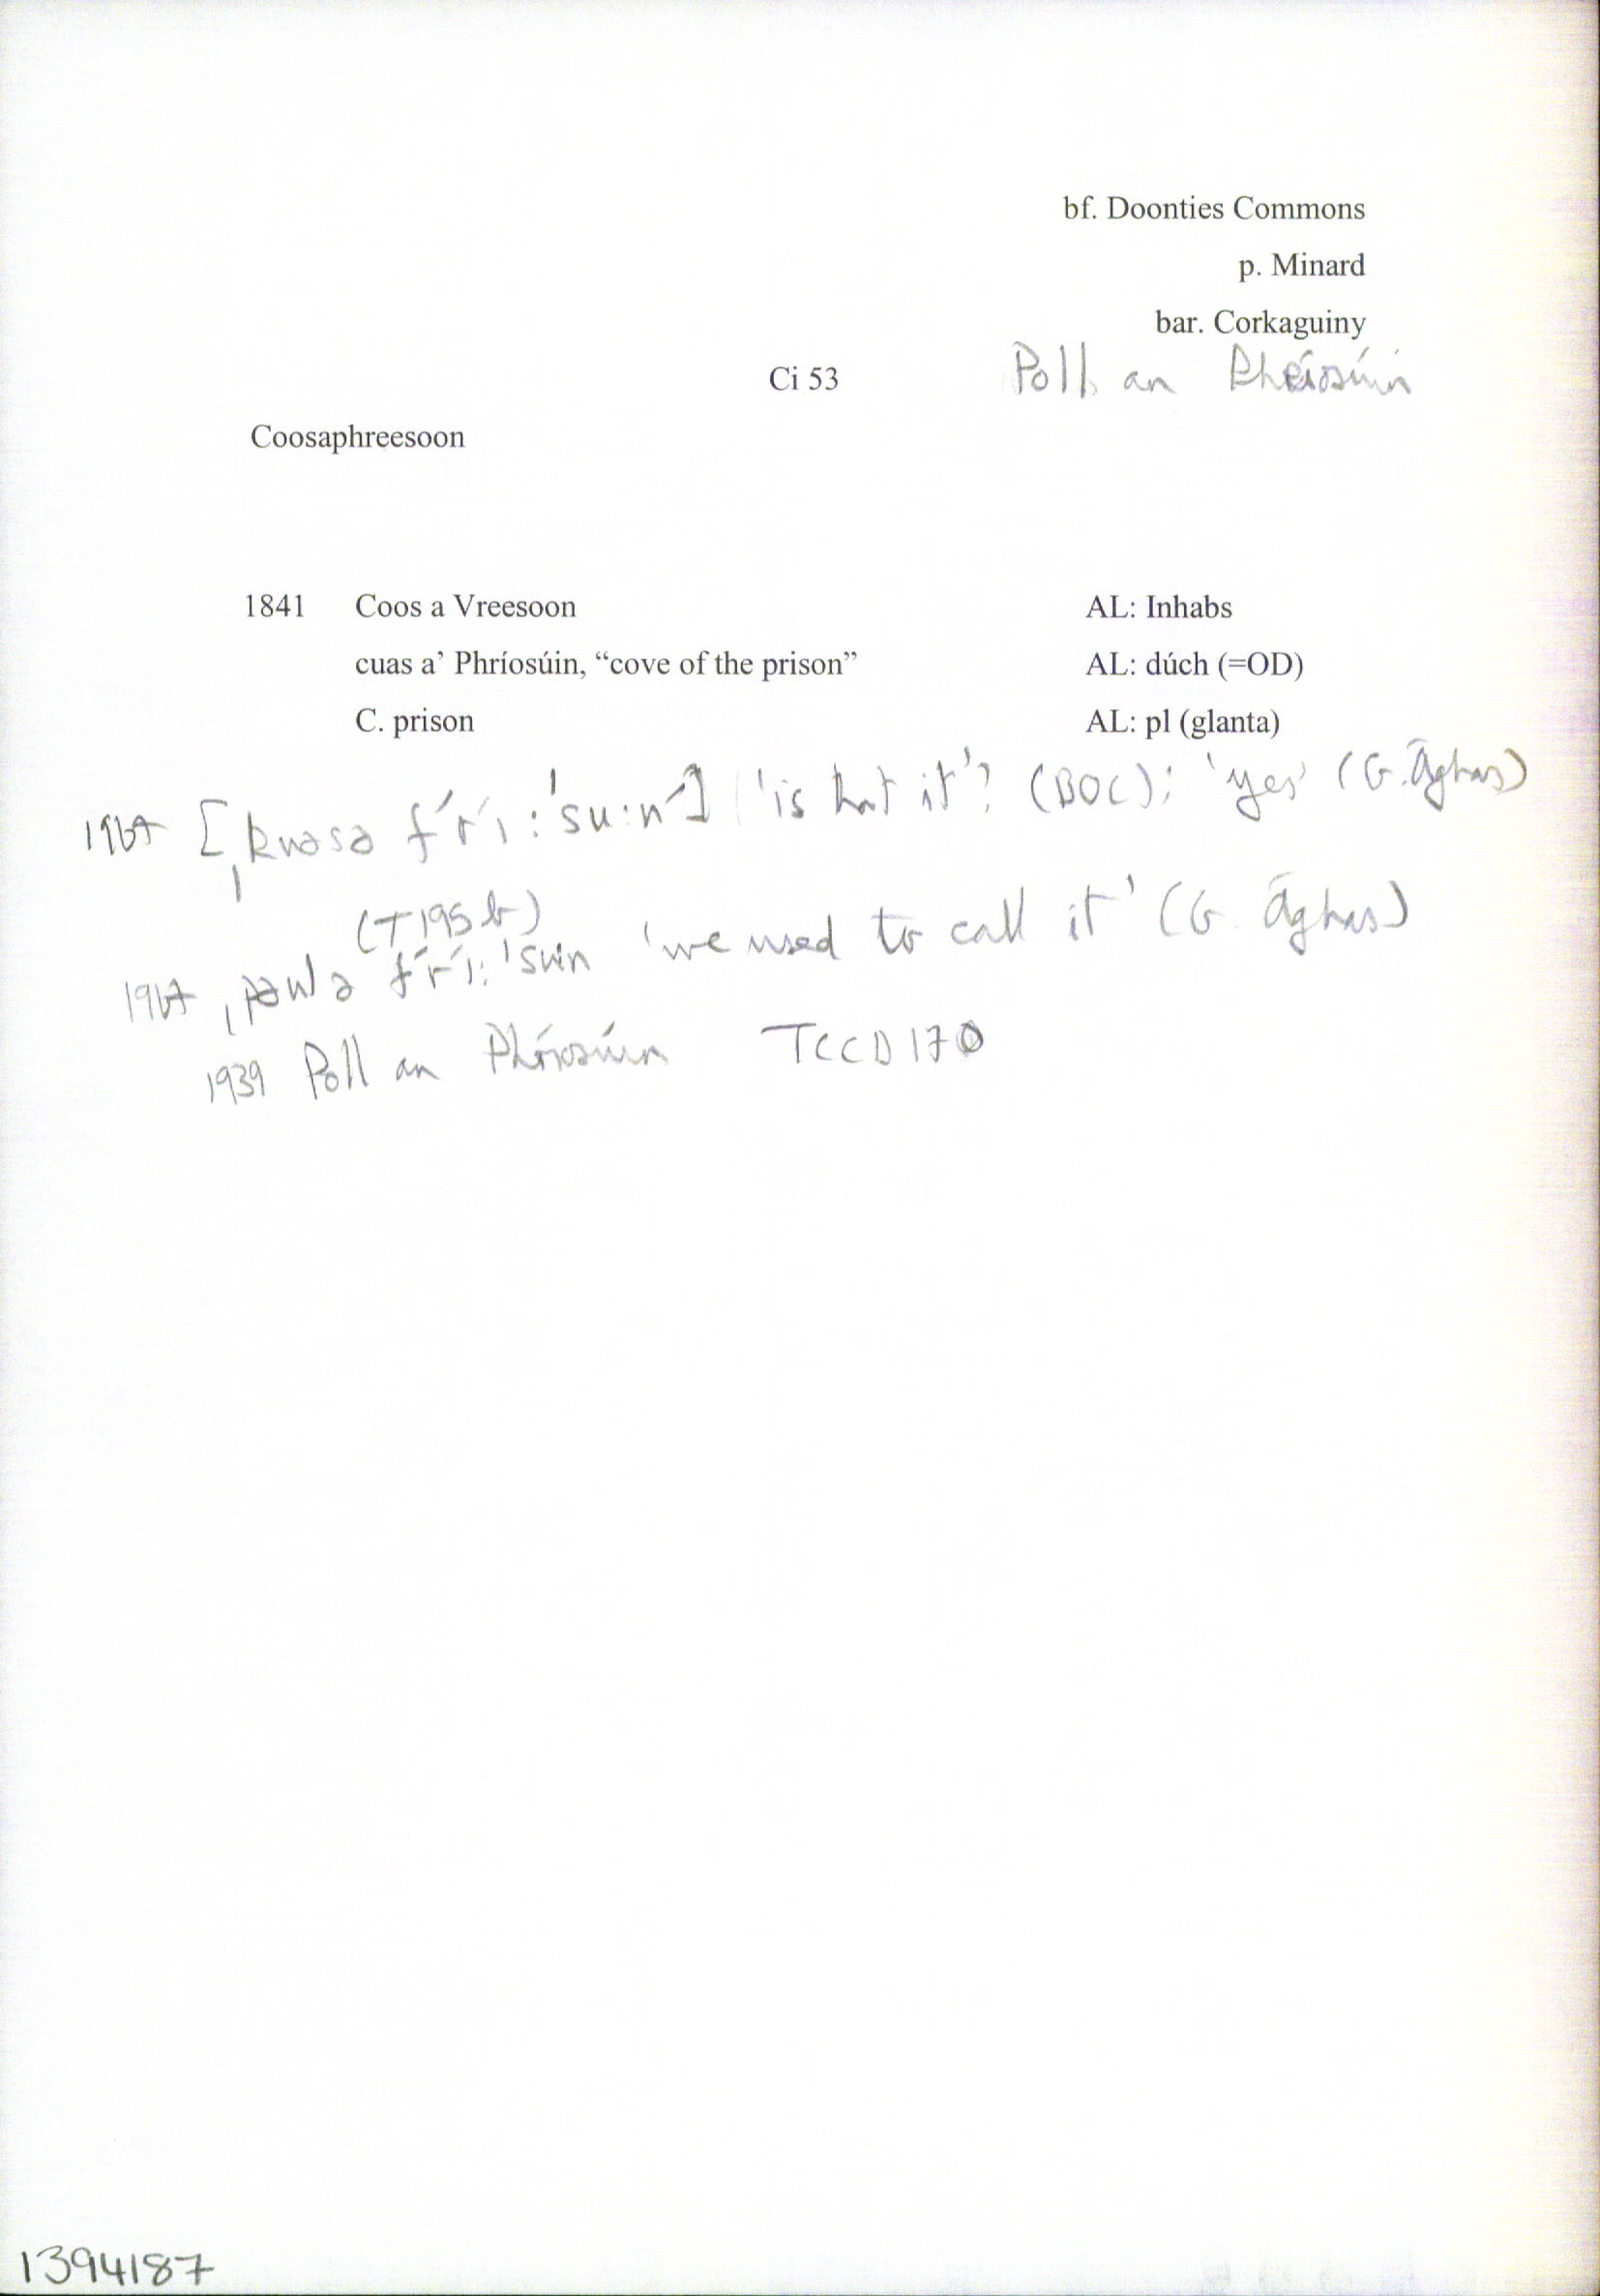 bf. Doonties Commons
p. Minard
bar. Corkaguiny
Ci 53 Poll an Phríosúin
Coosaphreesoon
1841 Coos a Vreesoon AL: Inhabs
cuas a’ Phríosúin, “cove of the prison” AL: dúch (=OD)
C. prison AL: pl (glanta)
1967 [ˌkuəsə f´r´i:ˈsu:n´] 'is that it'? (BOC); 'yes' (G. Āghas)
(T195b)
1967 ˌpəulə f´r´i:ˈsuin 'we used to call it' (G. Āghas)
1939 Poll an Phríosúin TCCD170
1394187